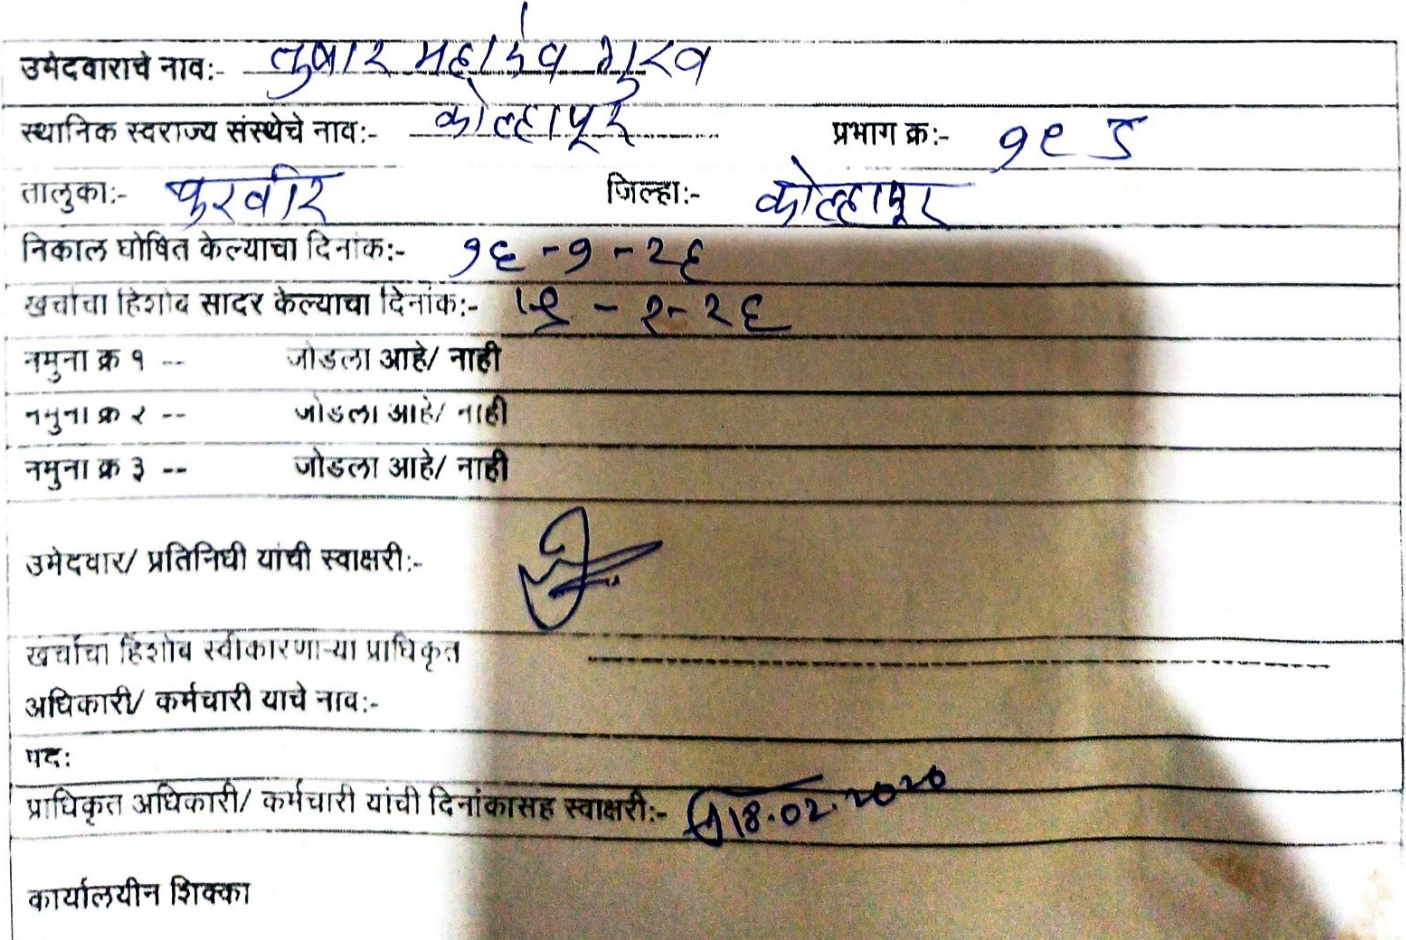 उमेदवाराचे नाव:- तुषार महादेव गुरव
स्थानिक स्वराज्य संस्थेचे नाव:- कोल्हापूर प्रभाग क्र:- १९ ड
तालुका:- करवीर जिल्हा:- कोल्हापूर
निकाल घोषित केल्याचा दिनांक:- १६-१-२६
खर्चाचा हिशोब सादर केल्याचा दिनांक:- -२-२६
नमुना क्र १ -- जोडला आहे/ नाही
नमुना क्र २ -- जोडला आहे/ नाही
नमुना क्र ३ -- जोडला आहे/ नाही
उमेदवार/ प्रतिनिधी यांची स्वाक्षरी:-
खर्चाचा हिशोब स्वीकारणाऱ्या प्राधिकृत
अधिकारी/ कर्मचारी याचे नाव:-
पद:
प्राधिकृत अधिकारी/ कर्मचारी यांची दिनांकासह स्वाक्षरी:- 18.02.2020
कार्यालयीन शिक्का